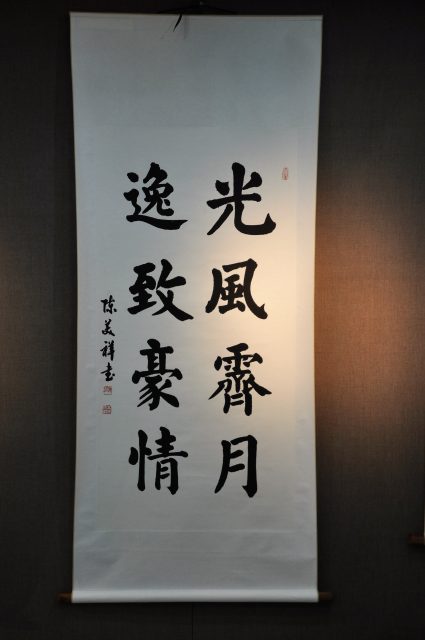 光風霽月
逸致豪情
陳美祥書